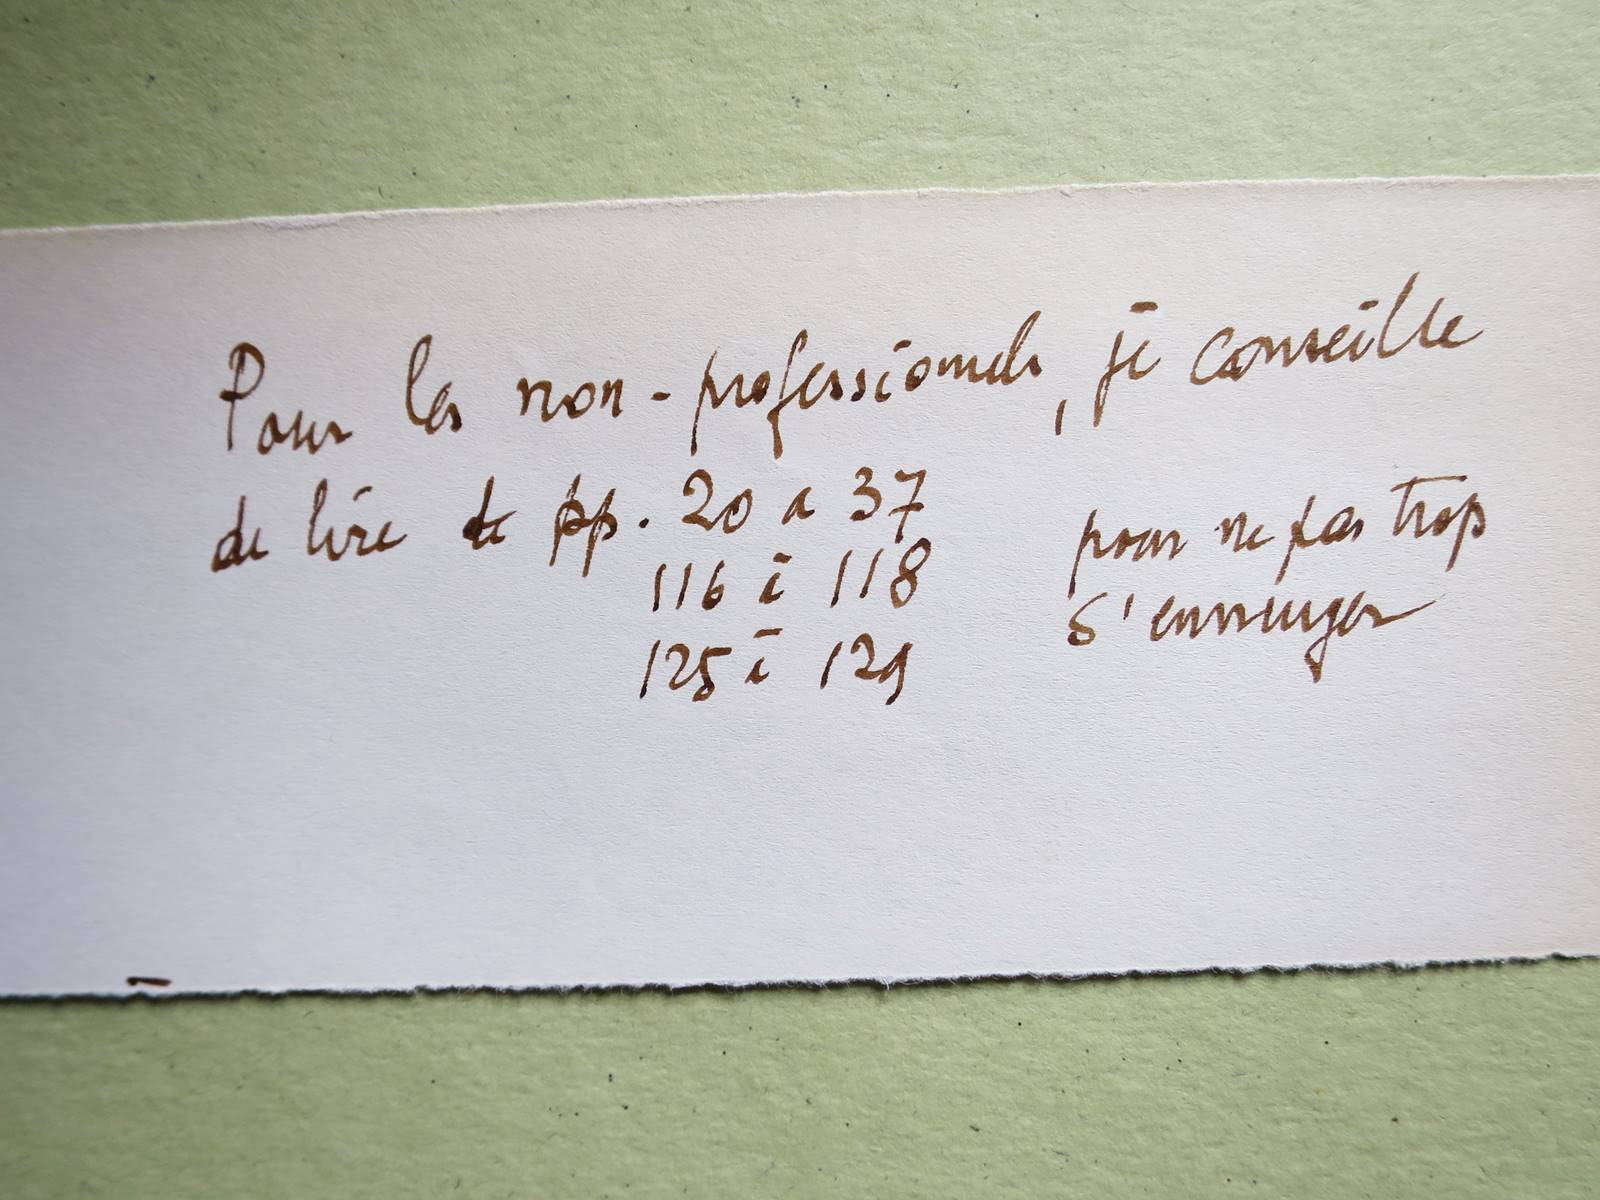 Pour les non-professionnels, je conseille
de lire de pp. 20 a 37
116 à 118
125 à 129
pour ne pas trop
s'ennuyer